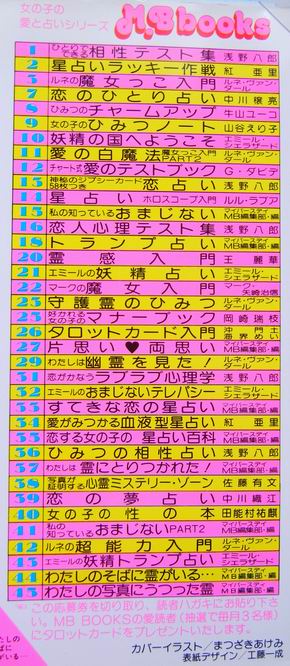 女の子の
愛と占いシリーズ
MB books
1 ひとりでできる相性テスト集 浅野八郎
2 星占いラッキー作戦 紅亜里
3 ルネの魔女っこ入門 ルネ・ヴァン・ダール
7 恋のひとり占い 中川穣亮
8 ひみつのチャームアップ 牛山ユーコ
9 女の子のひみつノート 山谷えり子
10 妖精の国へようこそ エミール・シェラザード
11 愛の白魔法 魔女っこ入門PART2 ルネ・ヴァン・ダール
12 チャート式愛のテストブック G・ダビデ
13 神秘のジプシーカード58枚つき 恋占い 浅野八郎
14 星占い ホロスコープ入門 ルル・ラブア
15 私の知っているおまじない マイバースデイMB編集部・編
16 恋人心理テスト集 浅野八郎
18 トランプ占い マイバースデイMB編集部・編
20 霊感入門 王麗華
21 エミールの妖精占い エミール・シェラザード
22 マークの魔女入門 マーク・矢崎治信
23 守護霊のひみつ ルネ・ヴァン・ダール
25 好かれる女の子のマナーブック 岡崎瑞枝
26 タロットカード入門
27 片思い♥両思い マイバースデイMB編集部・編
29 わたしは幽霊を見た! ルネ・ヴァンダール
31 恋がかなうラブラブ心理学 浅野八郎
32 エミールのおまじないテレパシー エミール・シェラザード
33 すてきな恋の星占い マイバースデイMB編集部・編
34 愛がみつかる血液型星占い 紅亜里
35 恋する女の子の星占い百科 マイバースデイMB編集部・編
36 ひみつの相性占い 浅野八郎
37 わたしは霊にとりつかれた! マイバースデイMB編集部・編
38 写真が証明する心霊ミステリー・ゾーン 佐藤有文
39 恋の夢占い 中川織江
40 女の子の性の本 田能村祐麒
41 私の知っているおまじないPART2 マイバースデイMB編集部・編
42 ルネの超能力入門 ルネ・ヴァン・ダール
43 エミールの妖精トランプ占い エミール・シェラザード
44 わたしのそばに霊がいる… マイバースデイMB編集部・編
45 わたしの写真にうつった霊 マイバースデイMB編集部・編
この応募券を切り取り、読者ハガキにお貼り下さ
い。MB BOOKSの愛読者(抽選で毎月3名様)
にタロットカードをプレゼントいたします。
カバーイラスト/まつざきあけみ
表紙デザイン/工藤一成